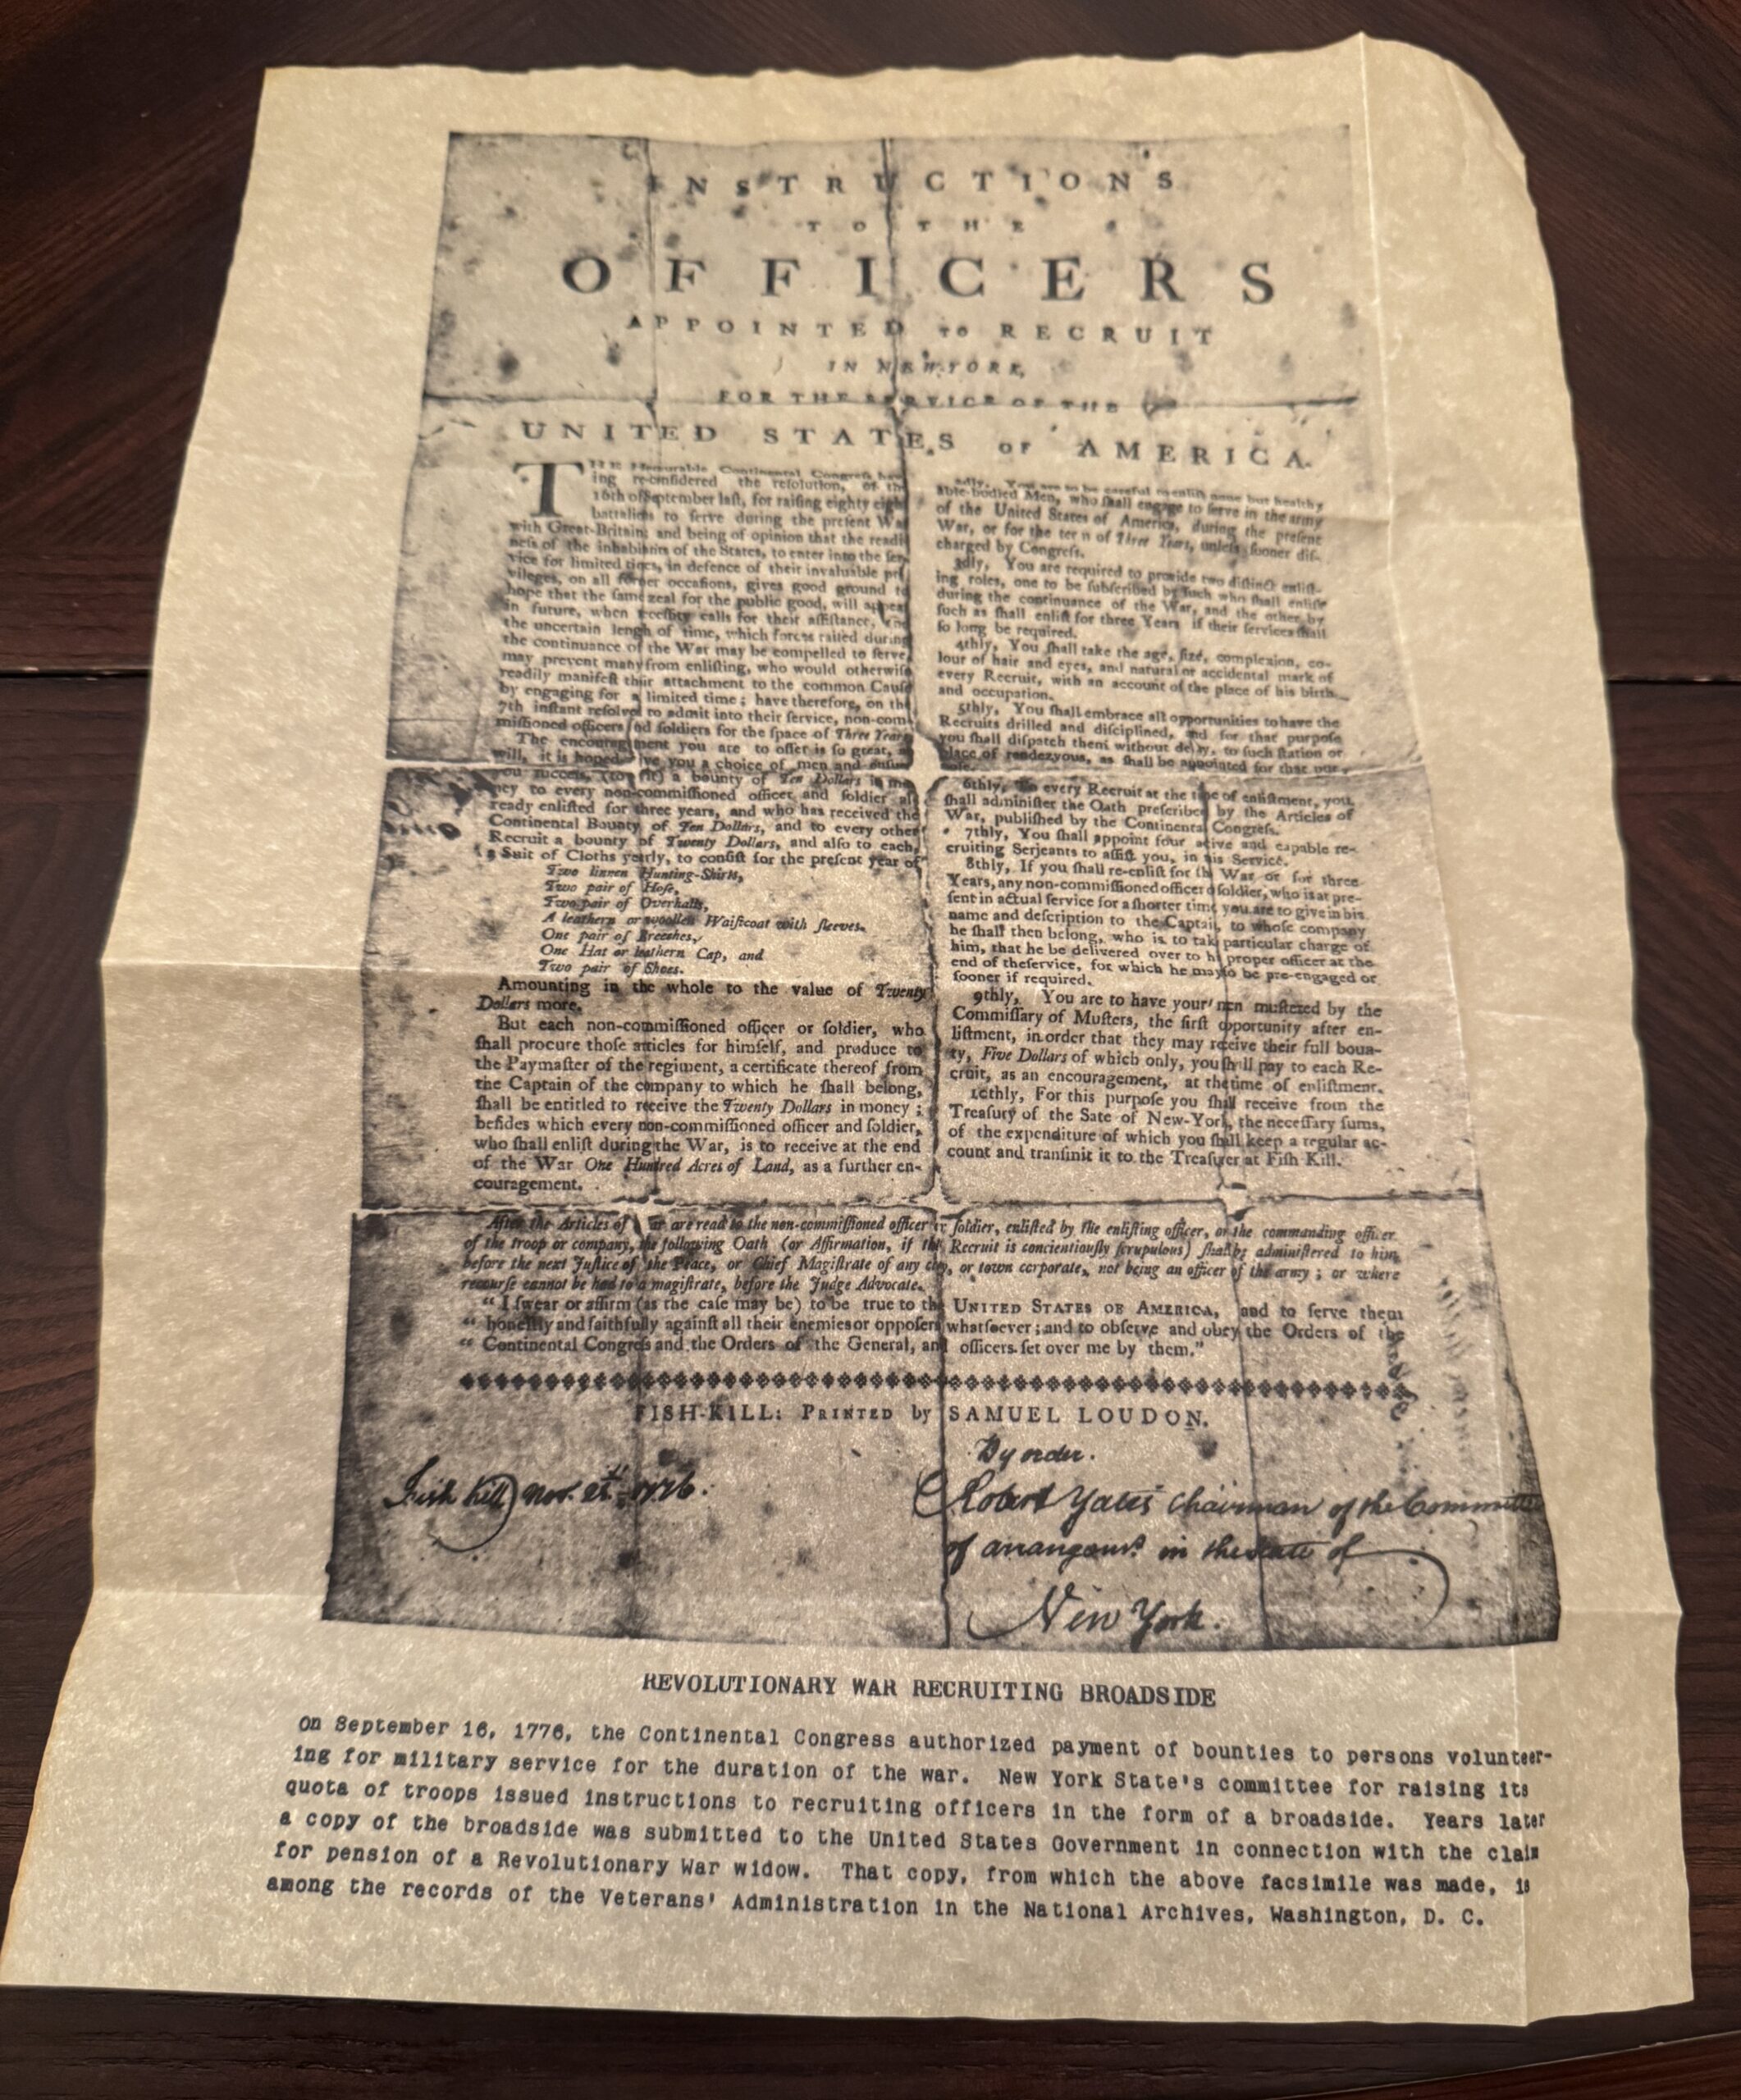 INSTRUCTIONS
TO THE
OFFICERS
APPOINTED TO RECRUIT
IN NEW-YORK,
FOR THE SERVICE OF THE
UNITED STATES OF AMERICA.
THE Honourable Continental Congreſs hav
ing re-conſidered the reſolution, of th
16th of September laſt, for raiſing eighty eigh
battalions to ſerve during the preſent Wa
with Great-Britain; and being of opinion that the readi
neſs of the inhabitants of the States, to enter into the ſer
vice for limited times, in defence of their invaluable pri
vileges, on all former occaſions, gives good ground to
hope that the ſame zeal for the public good, will appear
in future, when neceſſity calls for their aſſiſtance, and
the uncertain lengh of time, which forces raiſed during
the continuance of the War may be compelled to ſerve,
may prevent many from enliſting, who would otherwiſe
readily manifeſt their attachment to the common Cauſe
by engaging for a limited time; have therefore, on the
7th inſtant reſolved to admit into their ſervice, non-com-
miſſioned officers and ſoldiers for the ſpace of Three Years
The encouragment you are to offer is ſo great,
will, it is hoped give you a choice of men and enſure
you ſucceſs, (to ſit) a bounty of Ten Dollars in mo
ney to every non-commiſſioned officer and ſoldier al
ready enliſted for three years, and who has received the
Continental Bounty of Ten Dollars, and to every other
Recruit a bounty of Twenty Dollars, and alſo to each,
a Suit of Cloths yearly, to conſiſt for the preſent year of
Two linnen Hunting-Shirts,
Two pair of Hoſe,
Two pair of Overhalls,
A leathern or woollen Waiſtcoat with ſleeves.
One pair of Breeches,
One Hat or leathern Cap, and
Two pair of Shoes.
Amounting in the whole to the value of Twenty
Dollars more.
But each non-commiſſioned officer or ſoldier, who
ſhall procure thoſe articles for himſelf, and produce to
the Paymaſter of the regiment, a certificate thereof from
the Captain of the company to which he ſhall belong,
ſhall be entitled to receive the Twenty Dollars in money;
beſides which every non-commiſſioned officer and ſoldier,
who ſhall enliſt during the War, is to receive at the end
of the War One Hundred Acres of Land, as a further en-
couragement.
2dly, You are to be careful to enliſt none but healthy
able-bodied Men, who ſhall engage to ſerve in the army
of the United States of America, during the preſent
War, or for the term of Three Years, unleſs ſooner diſ-
charged by Congreſs.
3dly, You are required to provide two diſtinct enliſt-
ing roles, one to be ſubſcribed by ſuch who ſhall enliſt
during the continuance of the War, and the other by
ſuch as ſhall enliſt for three Years if their ſervices ſhall
ſo long be required.
4thly, You ſhall take the age, ſize, complexion, co-
lour of hair and eyes, and natural or accidental mark of
every Recruit, with an account of the place of his birth
and occupation.
5thly, You ſhall embrace all opportunities to have the
Recruits drilled and diſciplined, and for that purpoſe
you ſhall diſpatch them without delay, to ſuch ſtation or
place of rendezvous, as ſhall be appointed for that pur-
poſe.
6thly, To every Recruit at the time of enliſtment, you
ſhall adminiſter the Oath preſcribed by the Articles of
War, publiſhed by the Continental Congreſs.
7thly, You ſhall appoint four active and capable re-
cruiting Serjeants to aſſiſt you, in this Service.
8thly, If you ſhall re-enliſt for the War or for three
Years, any non-commiſſioned officer o ſoldier, who is at pre-
ſent in actual ſervice for a ſhorter time you are to give in his
name and deſcription to the Captain, to whoſe company
he ſhall then belong, who is to take particular charge of
him, that he be delivered over to his proper officer at the
end of the ſervice, for which he may ſo be pre-engaged or
ſooner if required.
9thly, You are to have your men muſtered by the
Commiſſary of Muſters, the firſt opportunity after en-
liſtment, in order that they may receive their full boun-
ty, Five Dollars of which only, you ſhall pay to each Re-
cruit, as an encouragement, at the time of enliſtment.
10thly, For this purpoſe you ſhall receive from the
Treaſury of the Sate of New-York, the neceſſary ſums,
of the expenditure of which you ſhall keep a regular ac-
count and tranſmit it to the Treaſurer at Fiſh Kill.
After the Articles of War are read to the non-commiſſioned officer or ſoldier, enliſted by the enliſting officer, or the commanding officer
of the troop or company, the following Oath (or Affirmation, if the Recruit is concientiouſly ſcrupulous) ſhall be adminiſtered to him
before the next Juſtice of the Peace, or Chief Magiſtrate of any city, or town corporate, not being an officer of the army; or where
recourſe cannot be had to a magiſtrate, before the Judge Advocate.
"I ſwear or affirm (as the caſe may be) to be true to the UNITED STATES OF AMERICA, and to ſerve them
" honeſtly and faithfully againſt all their enemies or oppoſers whatſoever; and to obſerve and obey the Orders of the
" Continental Congreſs and the Orders of the General, and officers ſet over me by them."
FISH-KILL: PRINTED by SAMUEL LOUDON.
By order.
Fish Kill Nov. 1776.
Robert Yates Chairman of the Committee
of arrangemt. in the State of
New York.
REVOLUTIONARY WAR RECRUITING BROADSIDE
On September 16, 1776, the Continental Congress authorized payment of bounties to persons volunteer-
ing for military service for the duration of the war. New York State's committee for raising its
quota of troops issued instructions to recruiting officers in the form of a broadside. Years later
a copy of the broadside was submitted to the United States Government in connection with the claim
for pension of a Revolutionary War widow. That copy, from which the above facsimile was made, is
among the records of the Veterans' Administration in the National Archives, Washington, D. C.